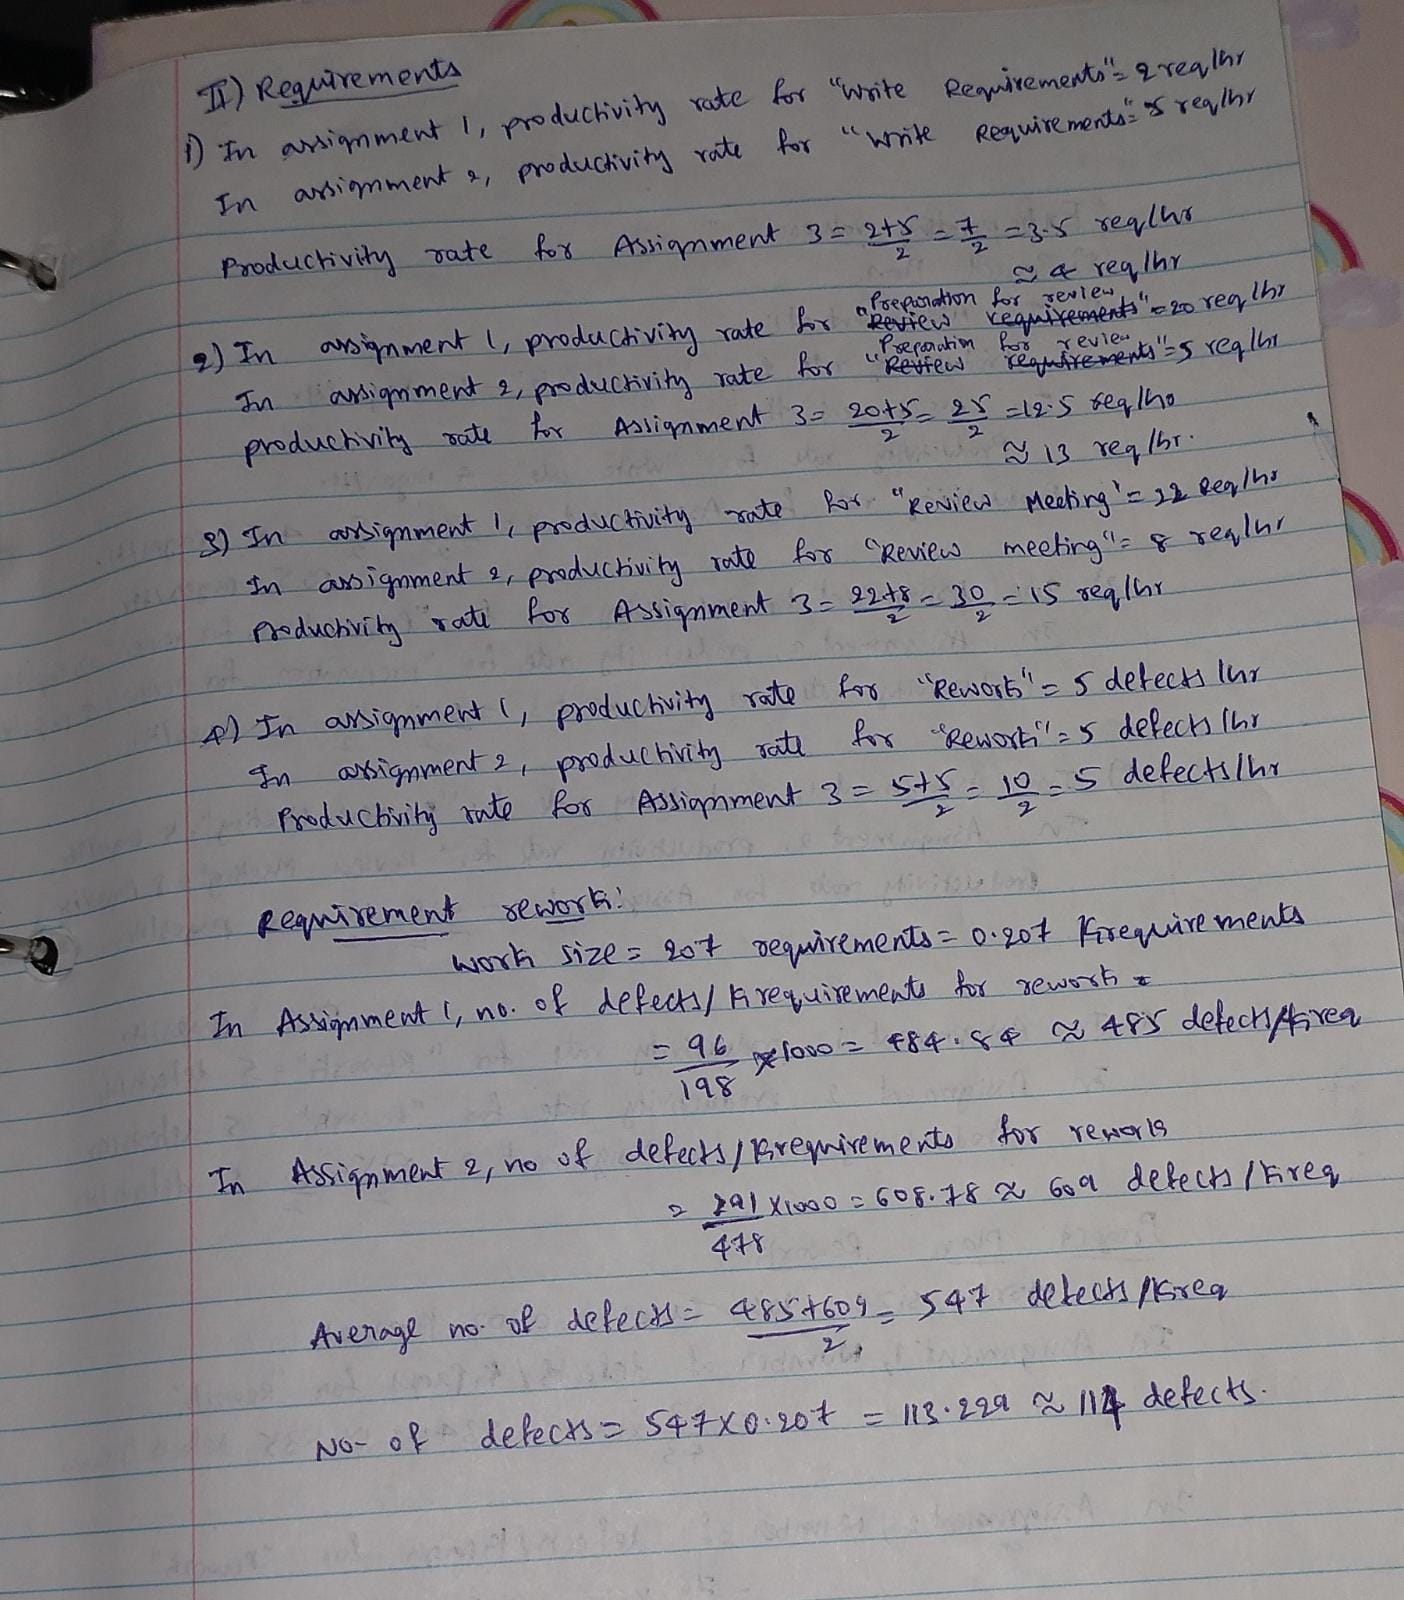 II) Requirements
1) In assignment 1, productivity rate for "Write Requirements" = 2 req/hr
In assignment 2, productivity rate for "Write Requirements" = 5 req/hr
Productivity rate for Assignment 3 = 2+5/2 = 7/2 = 3.5 req/hr
≈ 4 req/hr
"Preparation for review
2) In assignment 1, productivity rate for Review requirements" = 20 req/hr
Preparation for review
In assignment 2, productivity rate for "Review requirements" = 5 req/hr
productivity rate for Assignment 3 = 20+5/2 = 25/2 = 12.5 req/hr
≈ 13 req/hr.
3) In assignment 1, productivity rate for "Review Meeting" = 22 Req/hr
In assignment 2, productivity rate for "Review meeting" = 8 req/hr
Productivity rate for Assignment 3 = 22+8/2 = 30/2 = 15 req/hr
4) In assignment 1, productivity rate for "Rework" = 5 defects/hr
In assignment 2, productivity rate for "Rework" = 5 defects/hr
Productivity rate for Assignment 3 = 5+5/2 = 10/2 = 5 defects/hr
Requirement rework:
Work size = 207 requirements = 0.207 Krequirements
In Assignment 1, no. of defects/Krequirements for rework =
= 96/198 × 1000 = 484.84 ≈ 485 defects/Kreq
In Assignment 2, no of defects/Krequirements for rework
= 291/478 × 1000 = 608.78 ≈ 609 defects/Kreq
Average no. of defects = 485+609/2 = 547 defects/Kreq
No- of defects = 547×0.207 = 113.229 ≈ 114 defects.